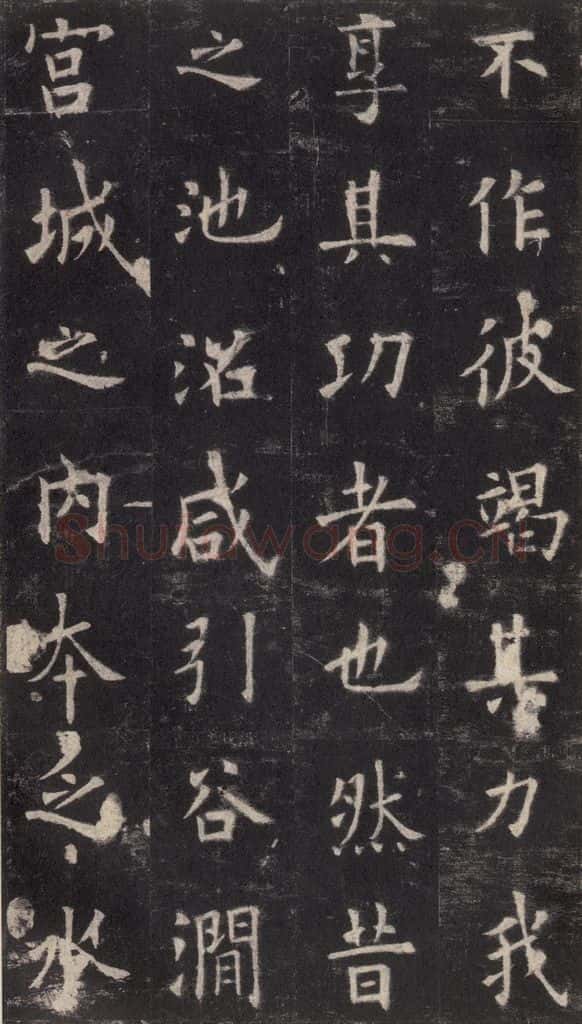 不作彼竭其力我
享其功者也然昔
之池沼咸引谷澗
宮城之內本乏水
Shufawang.CN